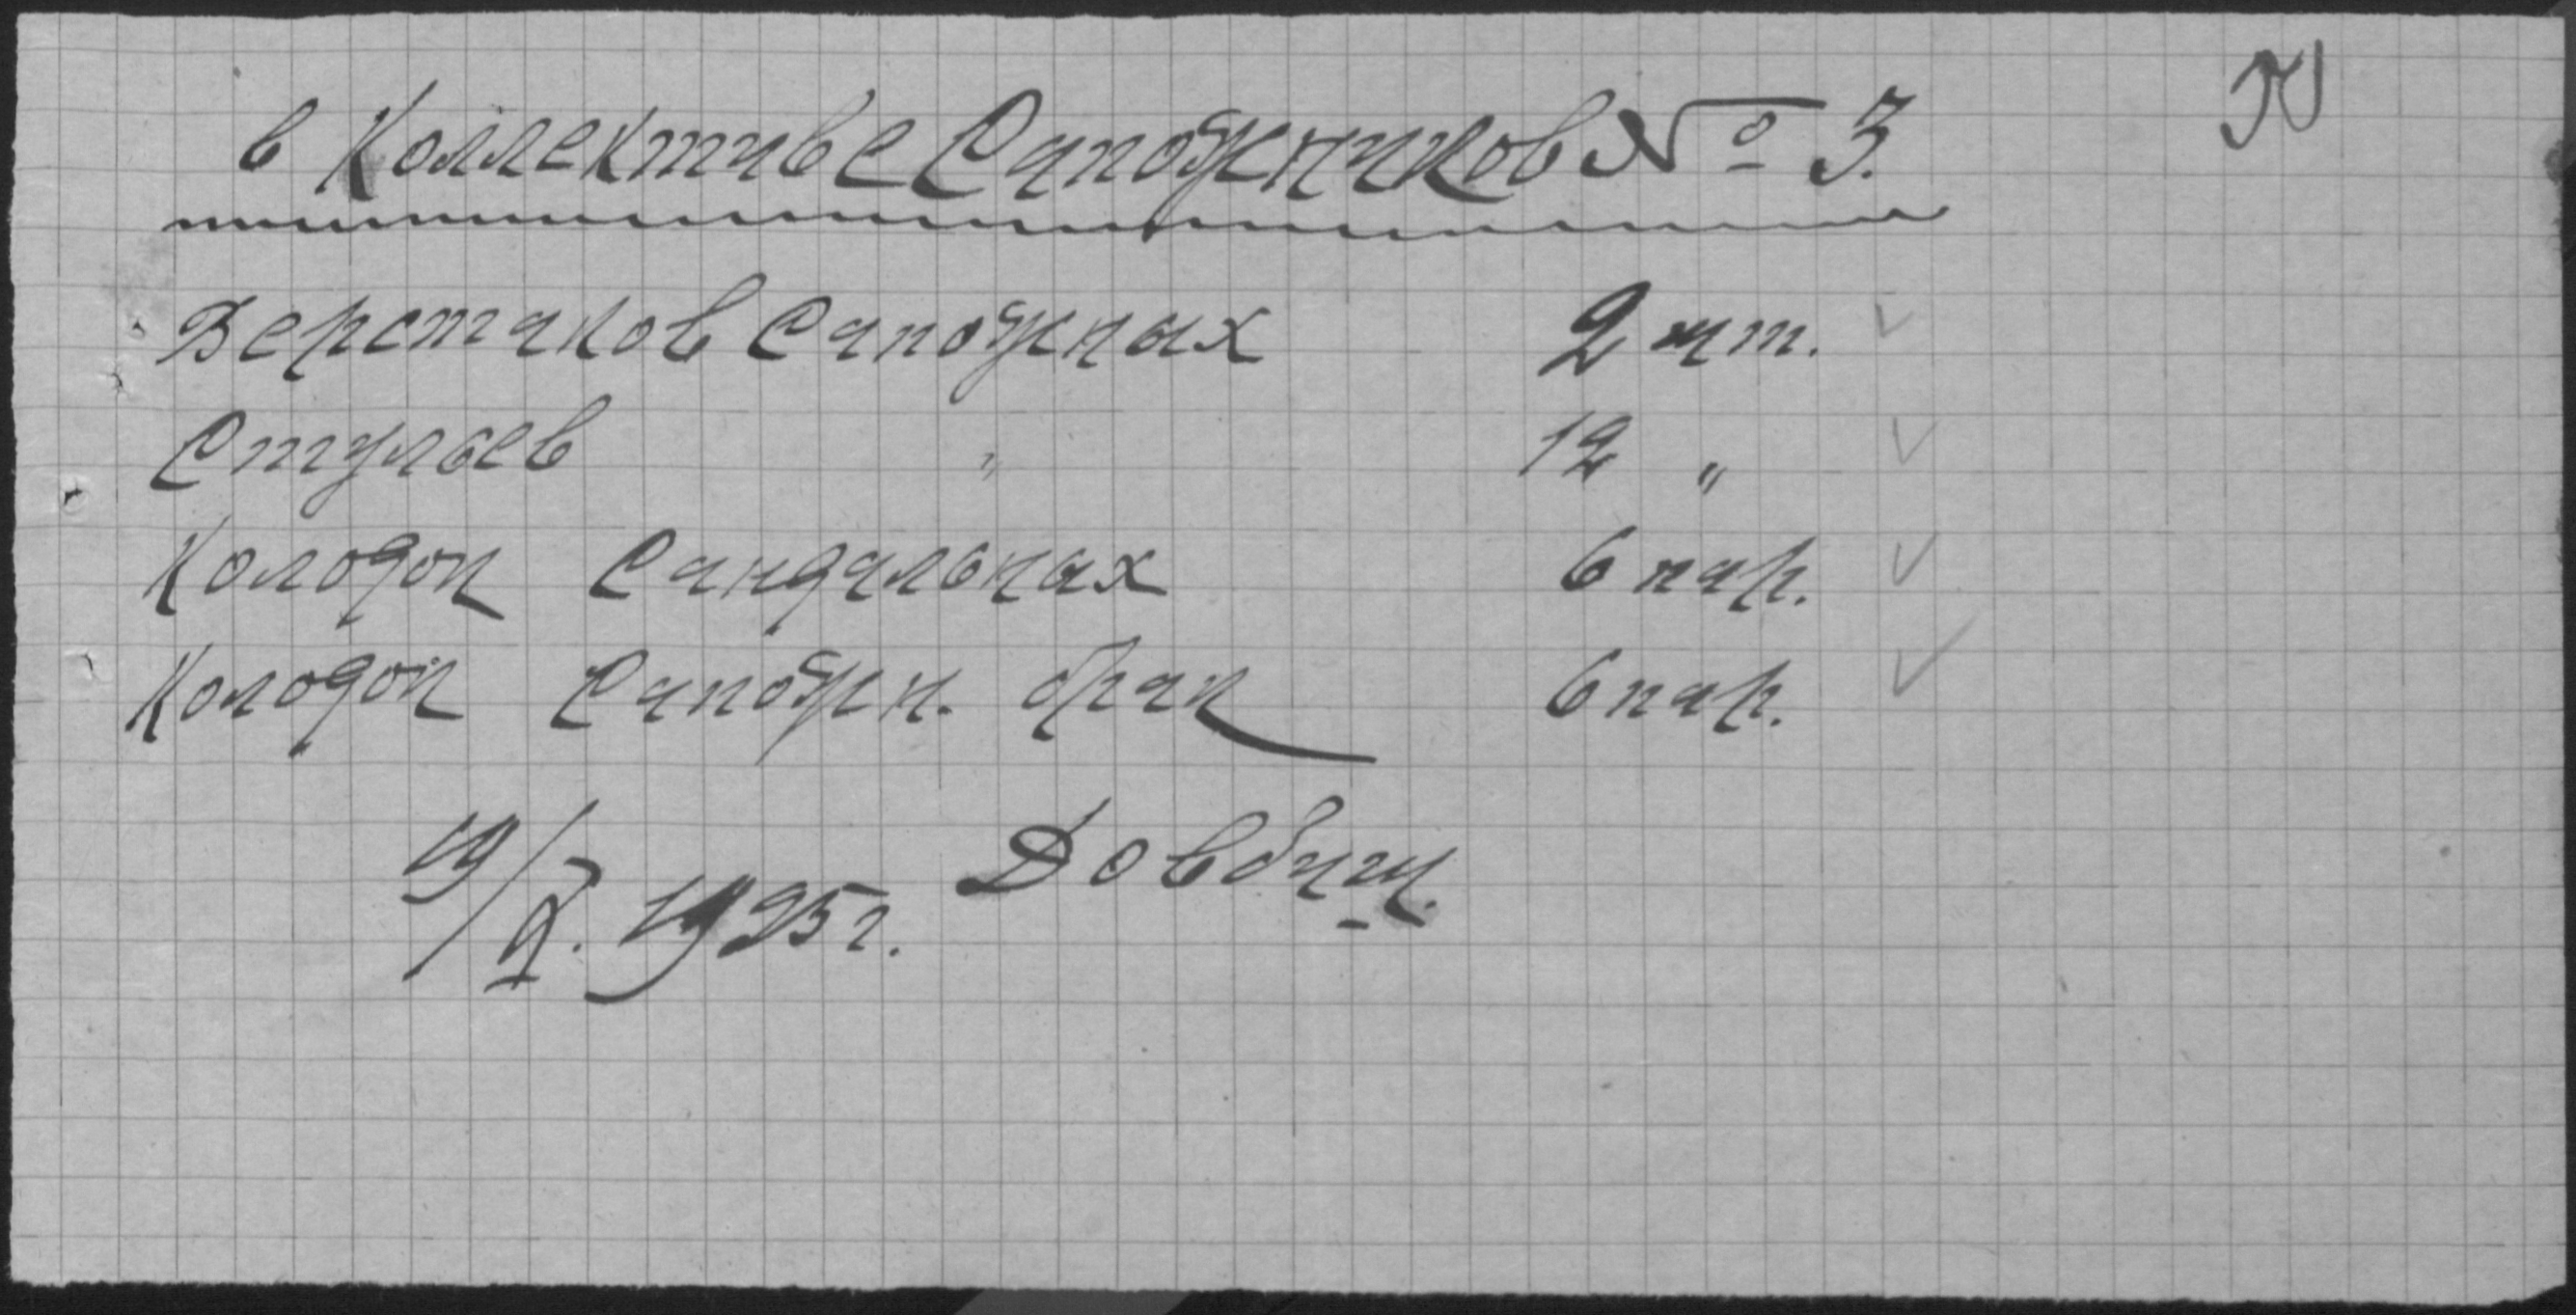 в Коллективе Сапожников № 3.
Верстаков Сапожных 2 шт. ✓
Стульев " 12 " ✓
Колодок Сандальных 6 пар. ✓
Колодок Сапожн. брак 6 пар. ✓
19/X. 1925 г. Довбищ.